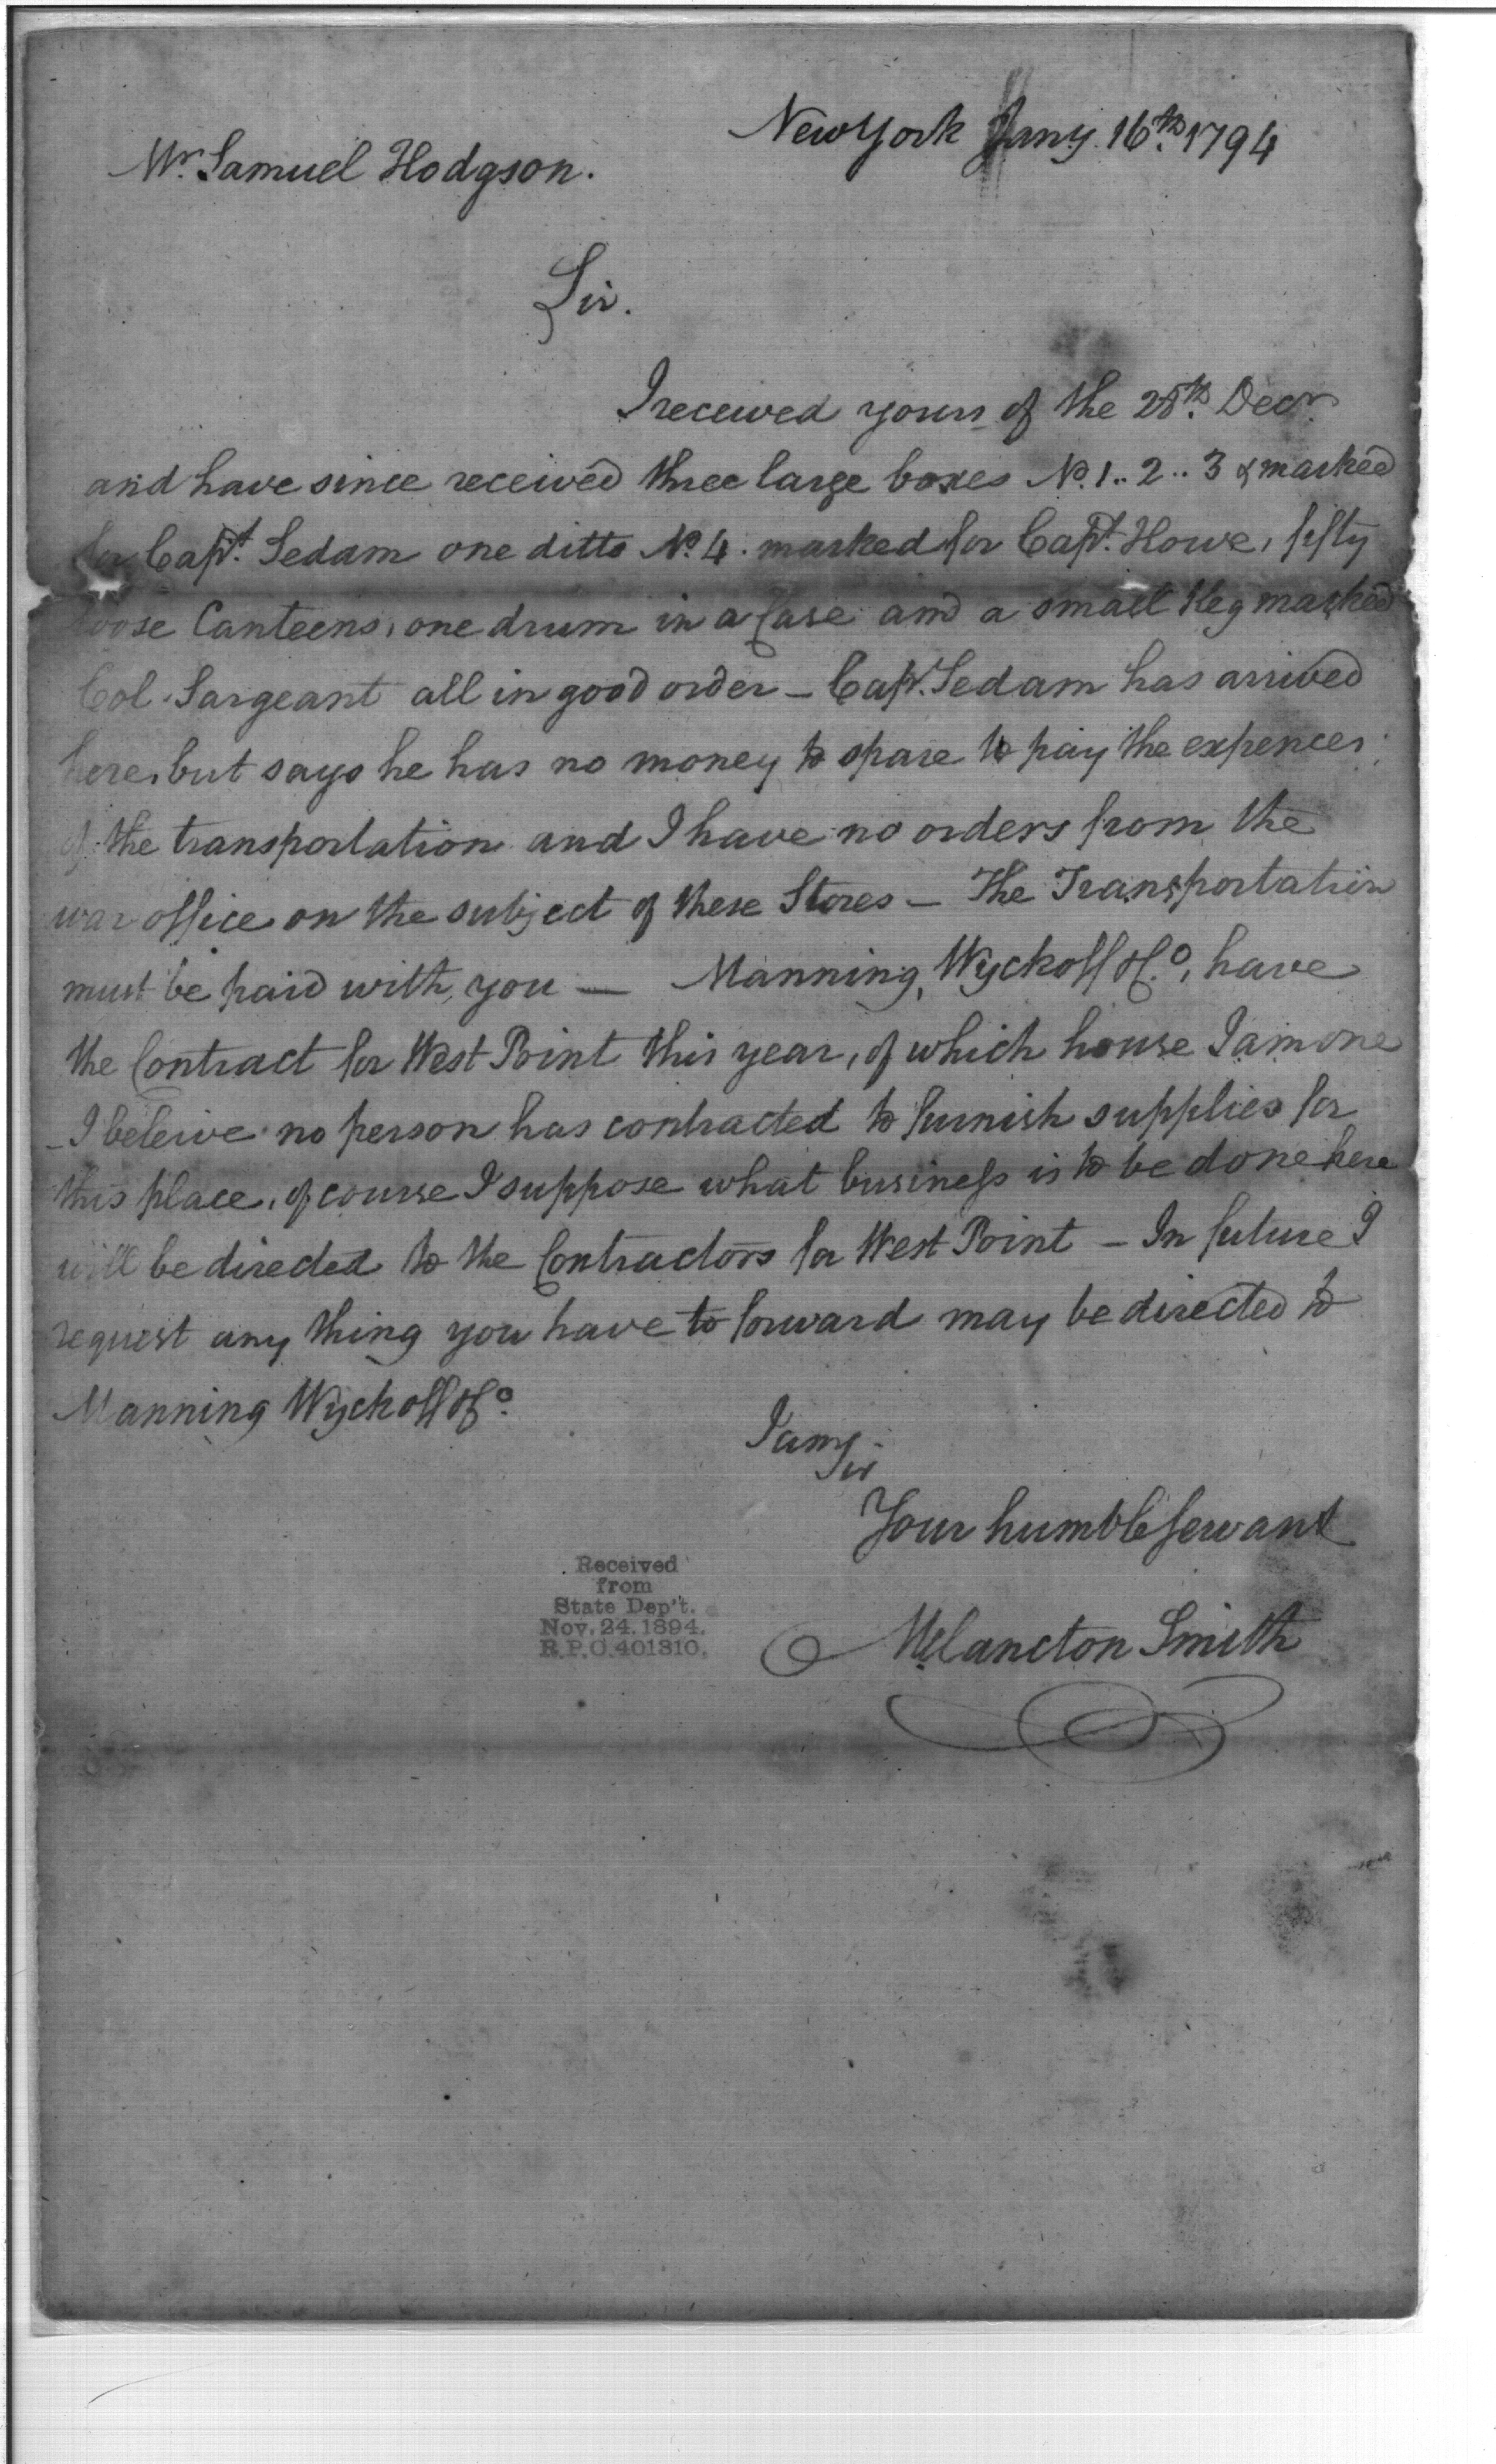 New York Jany. 16th. 1794
Mr. Samuel Hodgson.
Sir.
I received yours of the 28th. Decr.
and have since received three large boxes No. 1.. 2.. 3 & marked
for Capt. Sedam one ditto No. 4. marked for Capt. Howe, fifty
loose Canteens, one drum in a Case and a small Keg marked
Col. Sargeant all in good order – Capt. Sedam has arrived
here, but says he has no money to spare to pay the expences
of the transportation and I have no orders from the
war office on the subject of these Stores – The Transportation
must be paid with you – Manning, Wyckoff & Co., have
the Contract for West Point this year, of which house I am one
– I beleive no person has contracted to furnish supplies for
this place, of course I suppose what business is to be done here
will be directed to the Contractors for West Point – In future I
request any thing you have to forward may be directed to
Manning Wyckoff & Co.
I am
Sir
Your humble servant
Melancton Smith
Received
from
State Dep't.
Nov. 24. 1894.
R.P.O. 401310.